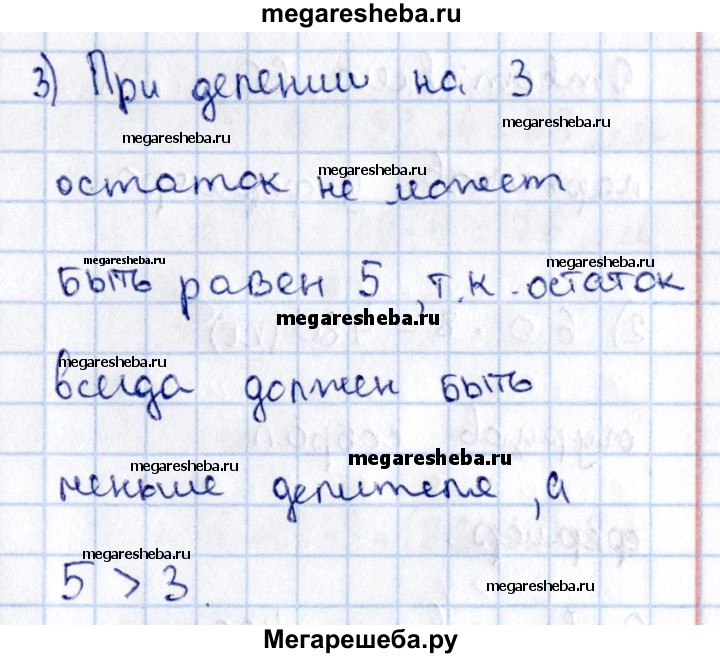 megaresheba.ru
3) При делении на 3
megaresheba.ru
megaresheba.ru
остаток не может
megaresheba.ru
megaresheba.ru
megaresheba.ru
быть равен 5, т.к. остаток
megaresheba.ru
megaresheba.ru
всегда должен быть
megaresheba.ru
megaresheba.ru
меньше делителя, а
megaresheba.ru
5 > 3.
megaresheba.ru
Мегарешеба.ру